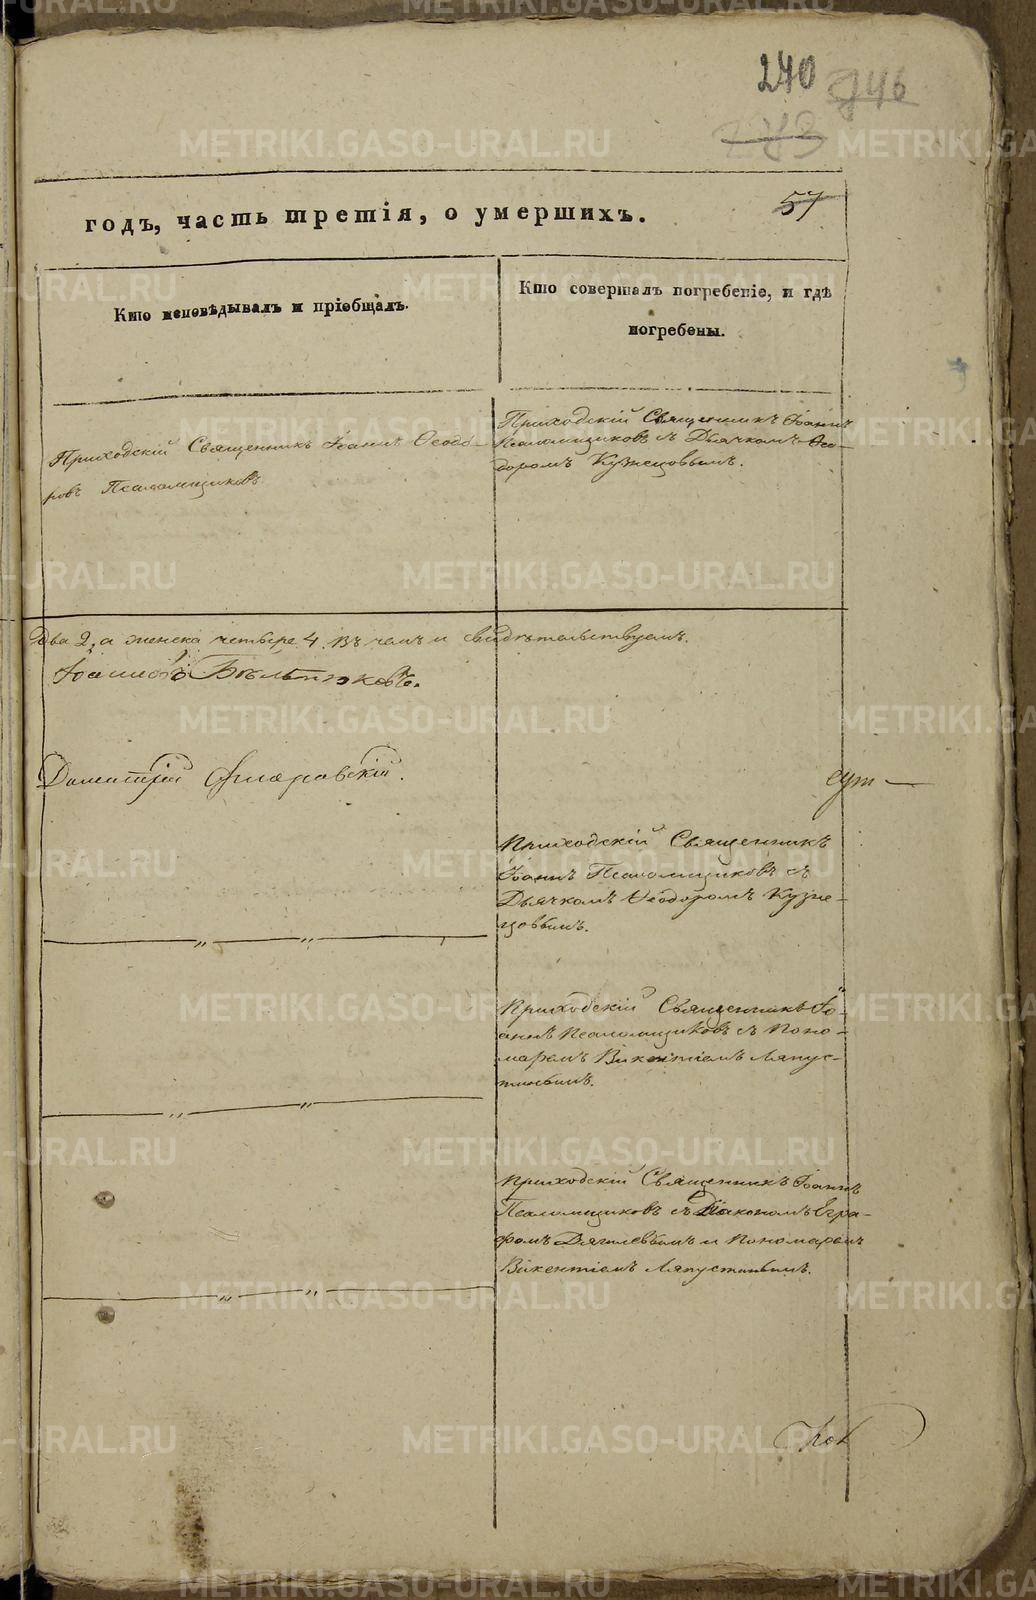 240
273
57
годъ, часть третія, о умершихъ.
Кто исповѣдывалъ и пріобщалъ.
Кто совершалъ погребеніе, и гдѣ
погребены.
Приходскій Священникъ Іоаннъ Ѳеодо-
ровъ Псаломщиковъ
Приходскій Священникъ Іоаннъ
Псаломщиковъ съ Дьячкомъ Ѳео-
доромъ Кузнецовымъ.
два 2, а женска четыре 4. Въ чемъ и свидѣтельствуемъ.
Іоанновъ
Димитрій
Приходскій Священникъ
Іоаннъ Псаломщиковъ съ
Дьячкомъ Ѳеодоромъ Кузне-
цовымъ.
Приходскій Священникъ Іо-
аннъ Псаломщиковъ съ Поно-
маремъ Викентіемъ Ляпус-
тинымъ.
Приходскій Священникъ Іоаннъ
Псаломщиковъ съ Діакономъ Евгра-
фомъ Дягилевымъ и Пономаремъ
Викентіемъ Ляпустинымъ.
METRIKI.GASO-URAL.RU